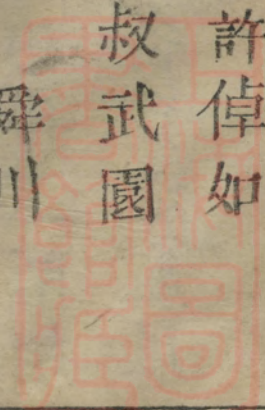 許倬如
叔武園
舜川